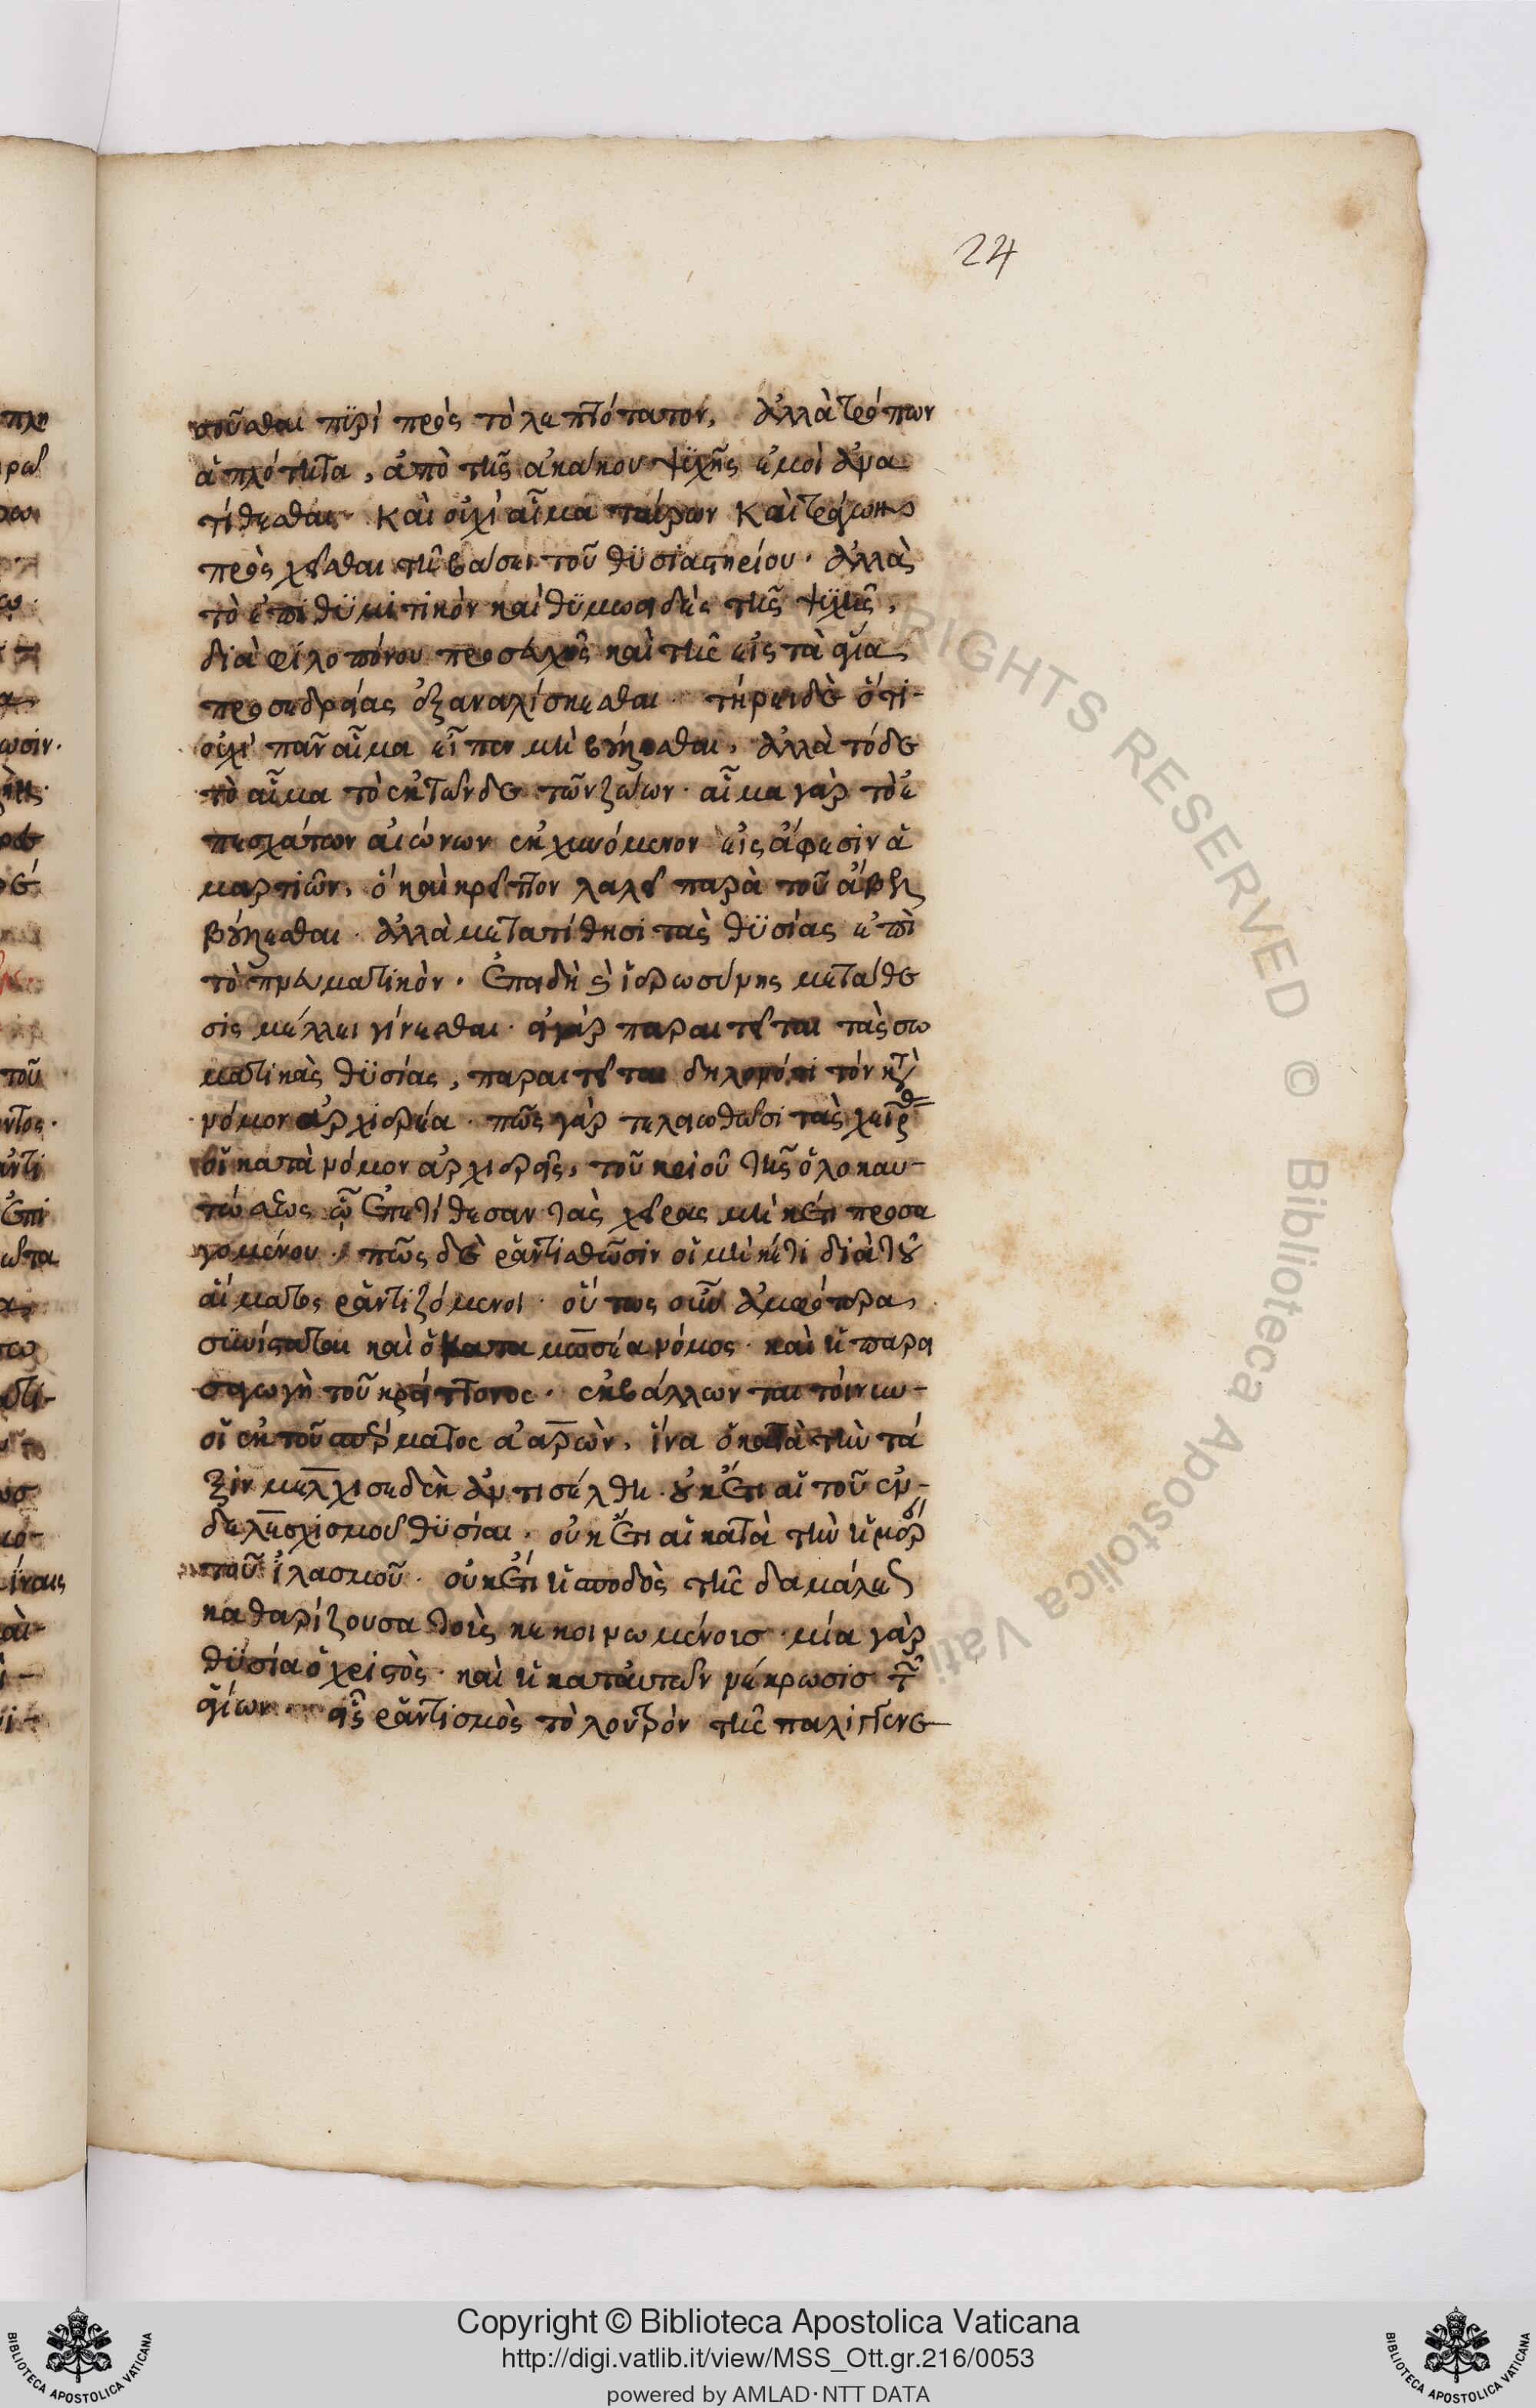 24
σοῦσθαι πϋρὶ πρὸς τὸ λεπτότατον, ἀλλὰ τρόπων
ἁπλότητα, ἀπὸ τῆς ἀκάκου ψϋχῆς ἐμοὶ ἀνα
τίθεσθαι. Καὶ οὐχὶ αἷμα ταύρων Καὶ τράγων
προσχεῖσθαι τῆ βάσει τοῦ θϋσιαστηρίου. ἀλλὰ
τὸ ἐπιθϋμιτικὸν καὶ θϋμωειδὲς τῆς ψϋχῆς,
διὰ φιλοπόνου προσευχῆς καὶ τῆς εἰς τὰ ἅγια
προσεδρείας ἐξαναλίσκεσθαι. τήρει δὲ ὅτι
οὐχὶ πᾶν αἷμα εἶπεν μὴ βούλεσθαι, ἀλλὰ τόδε
τὸ αἷμα τὸ ἐκ τῶνδε τῶν ζώων. αἷμα γὰρ τὸ ἐ
π' ἐσχάτων αἰώνων ἐκχεινόμενον εἰς ἄφεσιν ἁ
μαρτιῶν, ὁ καὶ κρεῖττον λαλεῖ παρὰ τοῦ ἄβελ
βούλεσθαι. ἀλλὰ μετατίθησι τὰς θϋσίας ἐπὶ
τὸ πνευματικὸν. ἐπειδὴ καὶ ἱερωσύνης μετάθε
σις μέλλει γίνεσθαι. εἰ γὰρ παραιτεῖται τὰς σω
ματικὰς θϋσίας, παραιτεῖται δηλονότι τὸν κατὰ
νόμον ἀρχιερέα. πῶς γὰρ τελειωθῶσι τὰς χεῖρας
οἱ κατὰ νόμον ἀρχιερεῖς, τοῦ κριοῦ τῆς ὁλοκαυ-
τώσεως ᾧ ἐπετίθεσαν τὰς χεῖρας μὴ κέτι προσα
γομένου. πῶς δὲ ῥαντισθῶσιν οἱ μὴ κέτι διὰ τοῦ
αἵματος ῥαντιζόμενοι. οὕτως οὖν ἀμφότερα
σϋνίσταται καὶ ὁ κατα μωσέα νόμος. καὶ ἡ παρει
σαγωγὴ τοῦ κρείττονος. ἐκβάλλωνται τοίνυν
οἱ ἐκ τοῦ σπέρματος ἀαρὼν, ἵνα ὁ κατὰ τὴν τά
ξιν μελχισεδὲκ ἀντισέλθη. οὐκ ἔτι αἱ τοῦ ἐν-
δελεχισμοῦ θϋσίαι. οὐκ ἔτι αἱ κατὰ τὴν ἡμέραν
τοῦ ἱλασμοῦ. οὐκ ἔτι ἡ σποδὸς τῆς δαμάλεως
καθαρίζουσα τοὺς κεκοινωμένους. μία γὰρ
θϋσία ὁ χριστὸς. καὶ ἡ κατ' αὐτὸν νέκρωσις τῶν
ἁγίων. εἷς ῥαντισμὸς τὸ λουτρὸν τῆς παλιγγενε
Copyright © Biblioteca Apostolica Vaticana
http://digi.vatlib.it/view/MSS_Ott.gr.216/0053
powered by AMLAD·NTT DATA